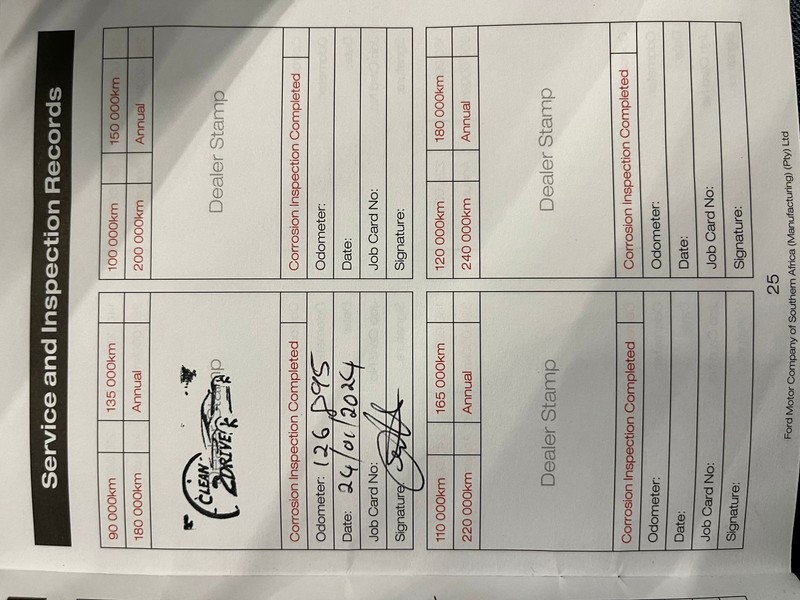 Service and Inspection Records
90 000km 135 000km
180 000km Annual
CLEAN
2DRIVE
Corrosion Inspection Completed
Odometer: 126 895
Date: 24/01/2024
Job Card No:
Signature:
100 000km 150 000km
200 000km Annual
Dealer Stamp
Corrosion Inspection Completed
Odometer:
Date:
Job Card No:
Signature:
110 000km 165 000km
220 000km Annual
Dealer Stamp
Corrosion Inspection Completed
Odometer:
Date:
Job Card No:
Signature:
120 000km 180 000km
240 000km Annual
Dealer Stamp
Corrosion Inspection Completed
Odometer:
Date:
Job Card No:
Signature:
25
Ford Motor Company of Southern Africa (Manufacturing) (Pty) Ltd